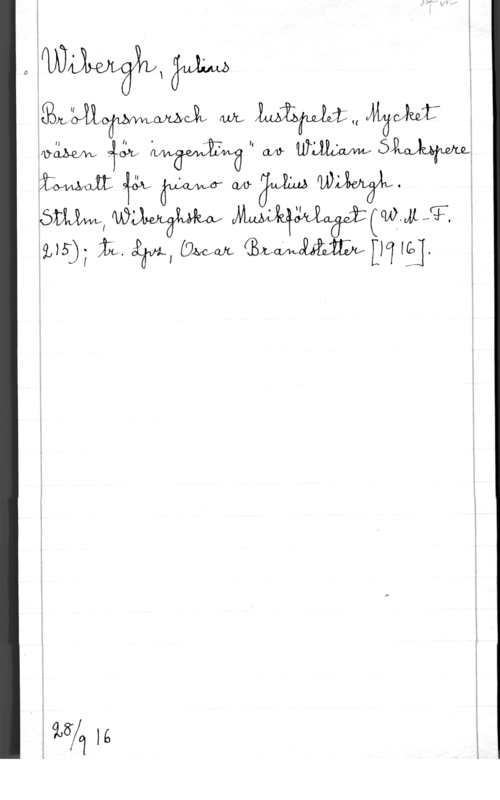 Wibergh, Julius
Bröllopsmarsch ur lustspelet „Mycket
väsen för ingenting" av William Shakspere
tonsatt för piano av Julius Wibergh.
Sthlm, Wiberghska Musikförlaget (W.M-F.
215); tr. Lpz, Oscar Brandstetter [1916].
28/9 16